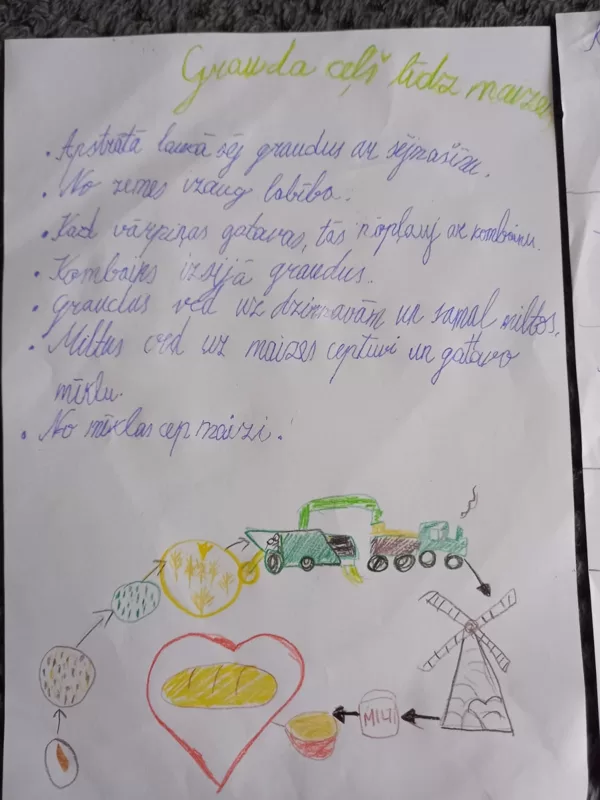 Grauda ceļš līdz maizei
• Apstrātā laukā sēj graudus ar sējmašīnu.
• No zemes izaug labība.
• Kad vārpiņas gatavas, tās nopļauj ar kombainu.
• Kombains izsijā graudus.
• Graudus ved uz dzirnavām un samaļ miltos.
• Miltus ved uz maizes ceptuvi un gatavo
mīklu.
• No mīklas cep maizi.
MILTI